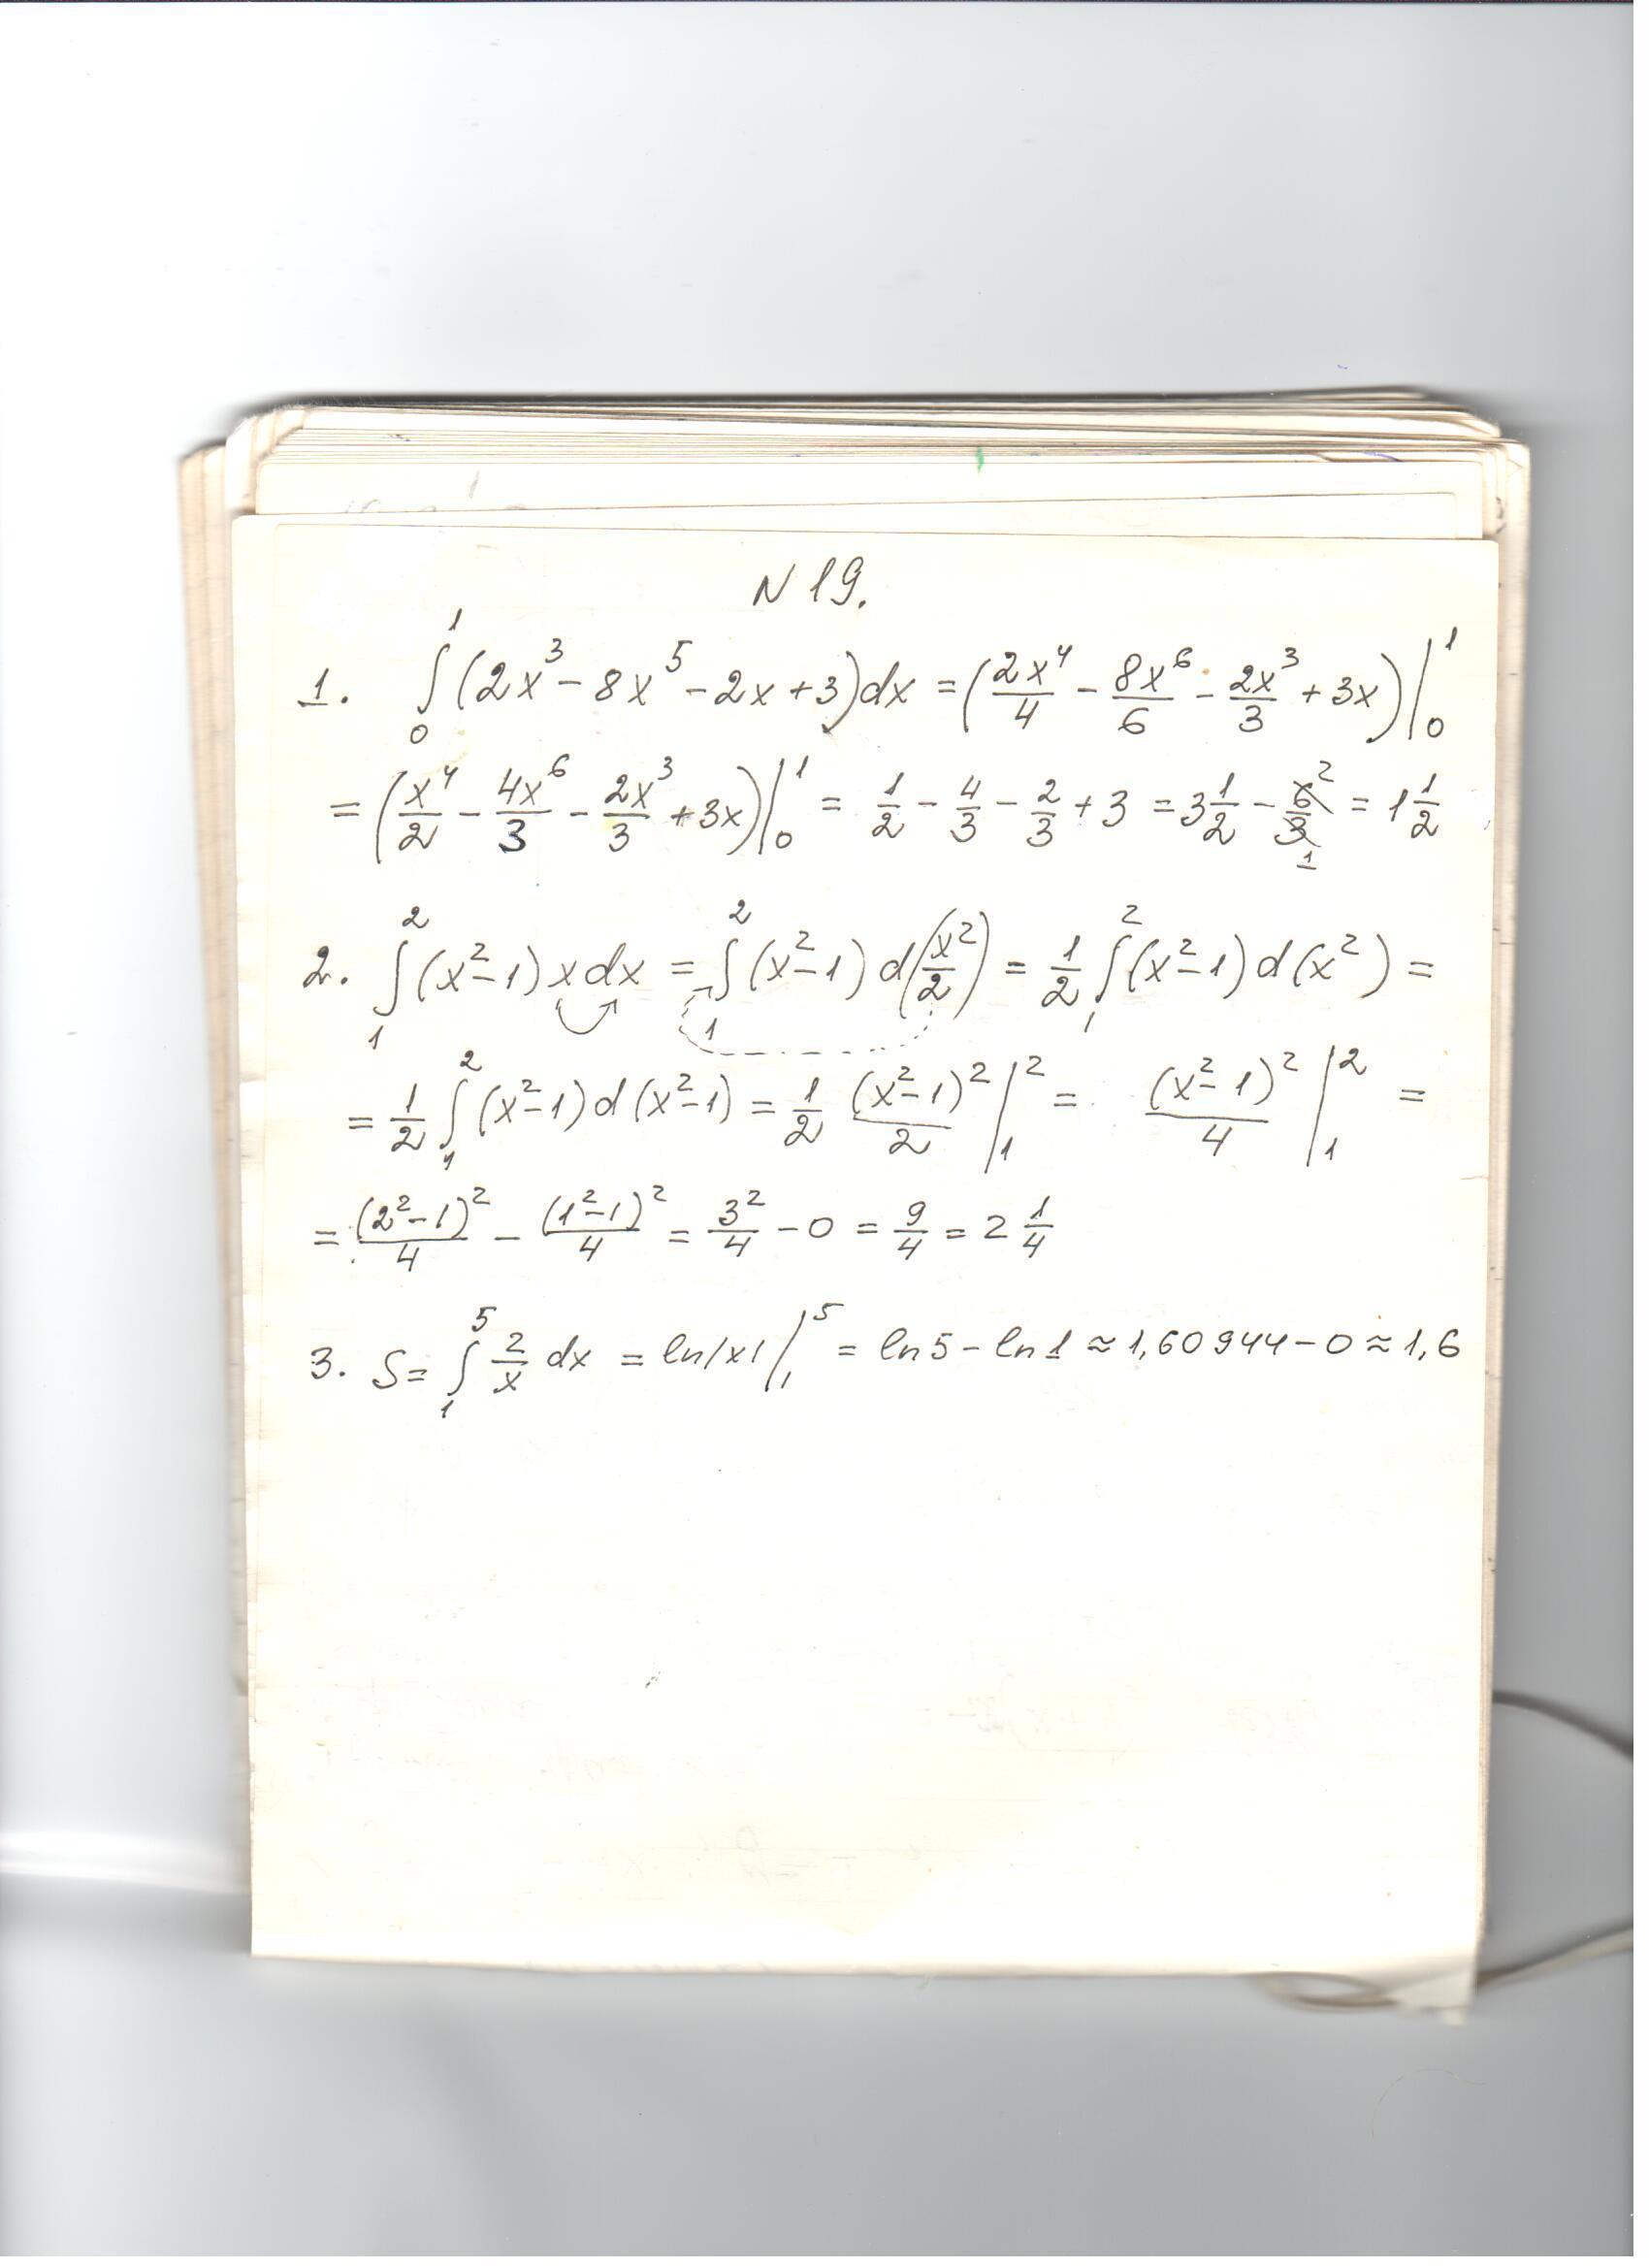 N 19.
1. ∫₀¹ (2x³ - 8x⁵ - 2x + 3)dx = (2x⁴/4 - 8x⁶/6 - 2x³/3 + 3x)|₀¹
= (x⁴/2 - 4x⁶/3 - 2x³/3 + 3x)|₀¹ = 1/2 - 4/3 - 2/3 + 3 = 3 1/2 - 6/3 2 1 = 1 1/2
2. ∫₁² (x² - 1) x dx = ∫₁² (x² - 1) d(x²/2) = 1/2 ∫₁² (x² - 1) d(x²) =
= 1/2 ∫₁² (x² - 1) d(x² - 1) = 1/2 (x² - 1)²/2 |₁² = (x² - 1)²/4 |₁² =
= (2² - 1)²/4 - (1² - 1)²/4 = 3²/4 - 0 = 9/4 = 2 1/4
3. S = ∫₁⁵ 2/x dx = ln|x| |₁⁵ = ln5 - ln1 ≈ 1,60944 - 0 ≈ 1,6